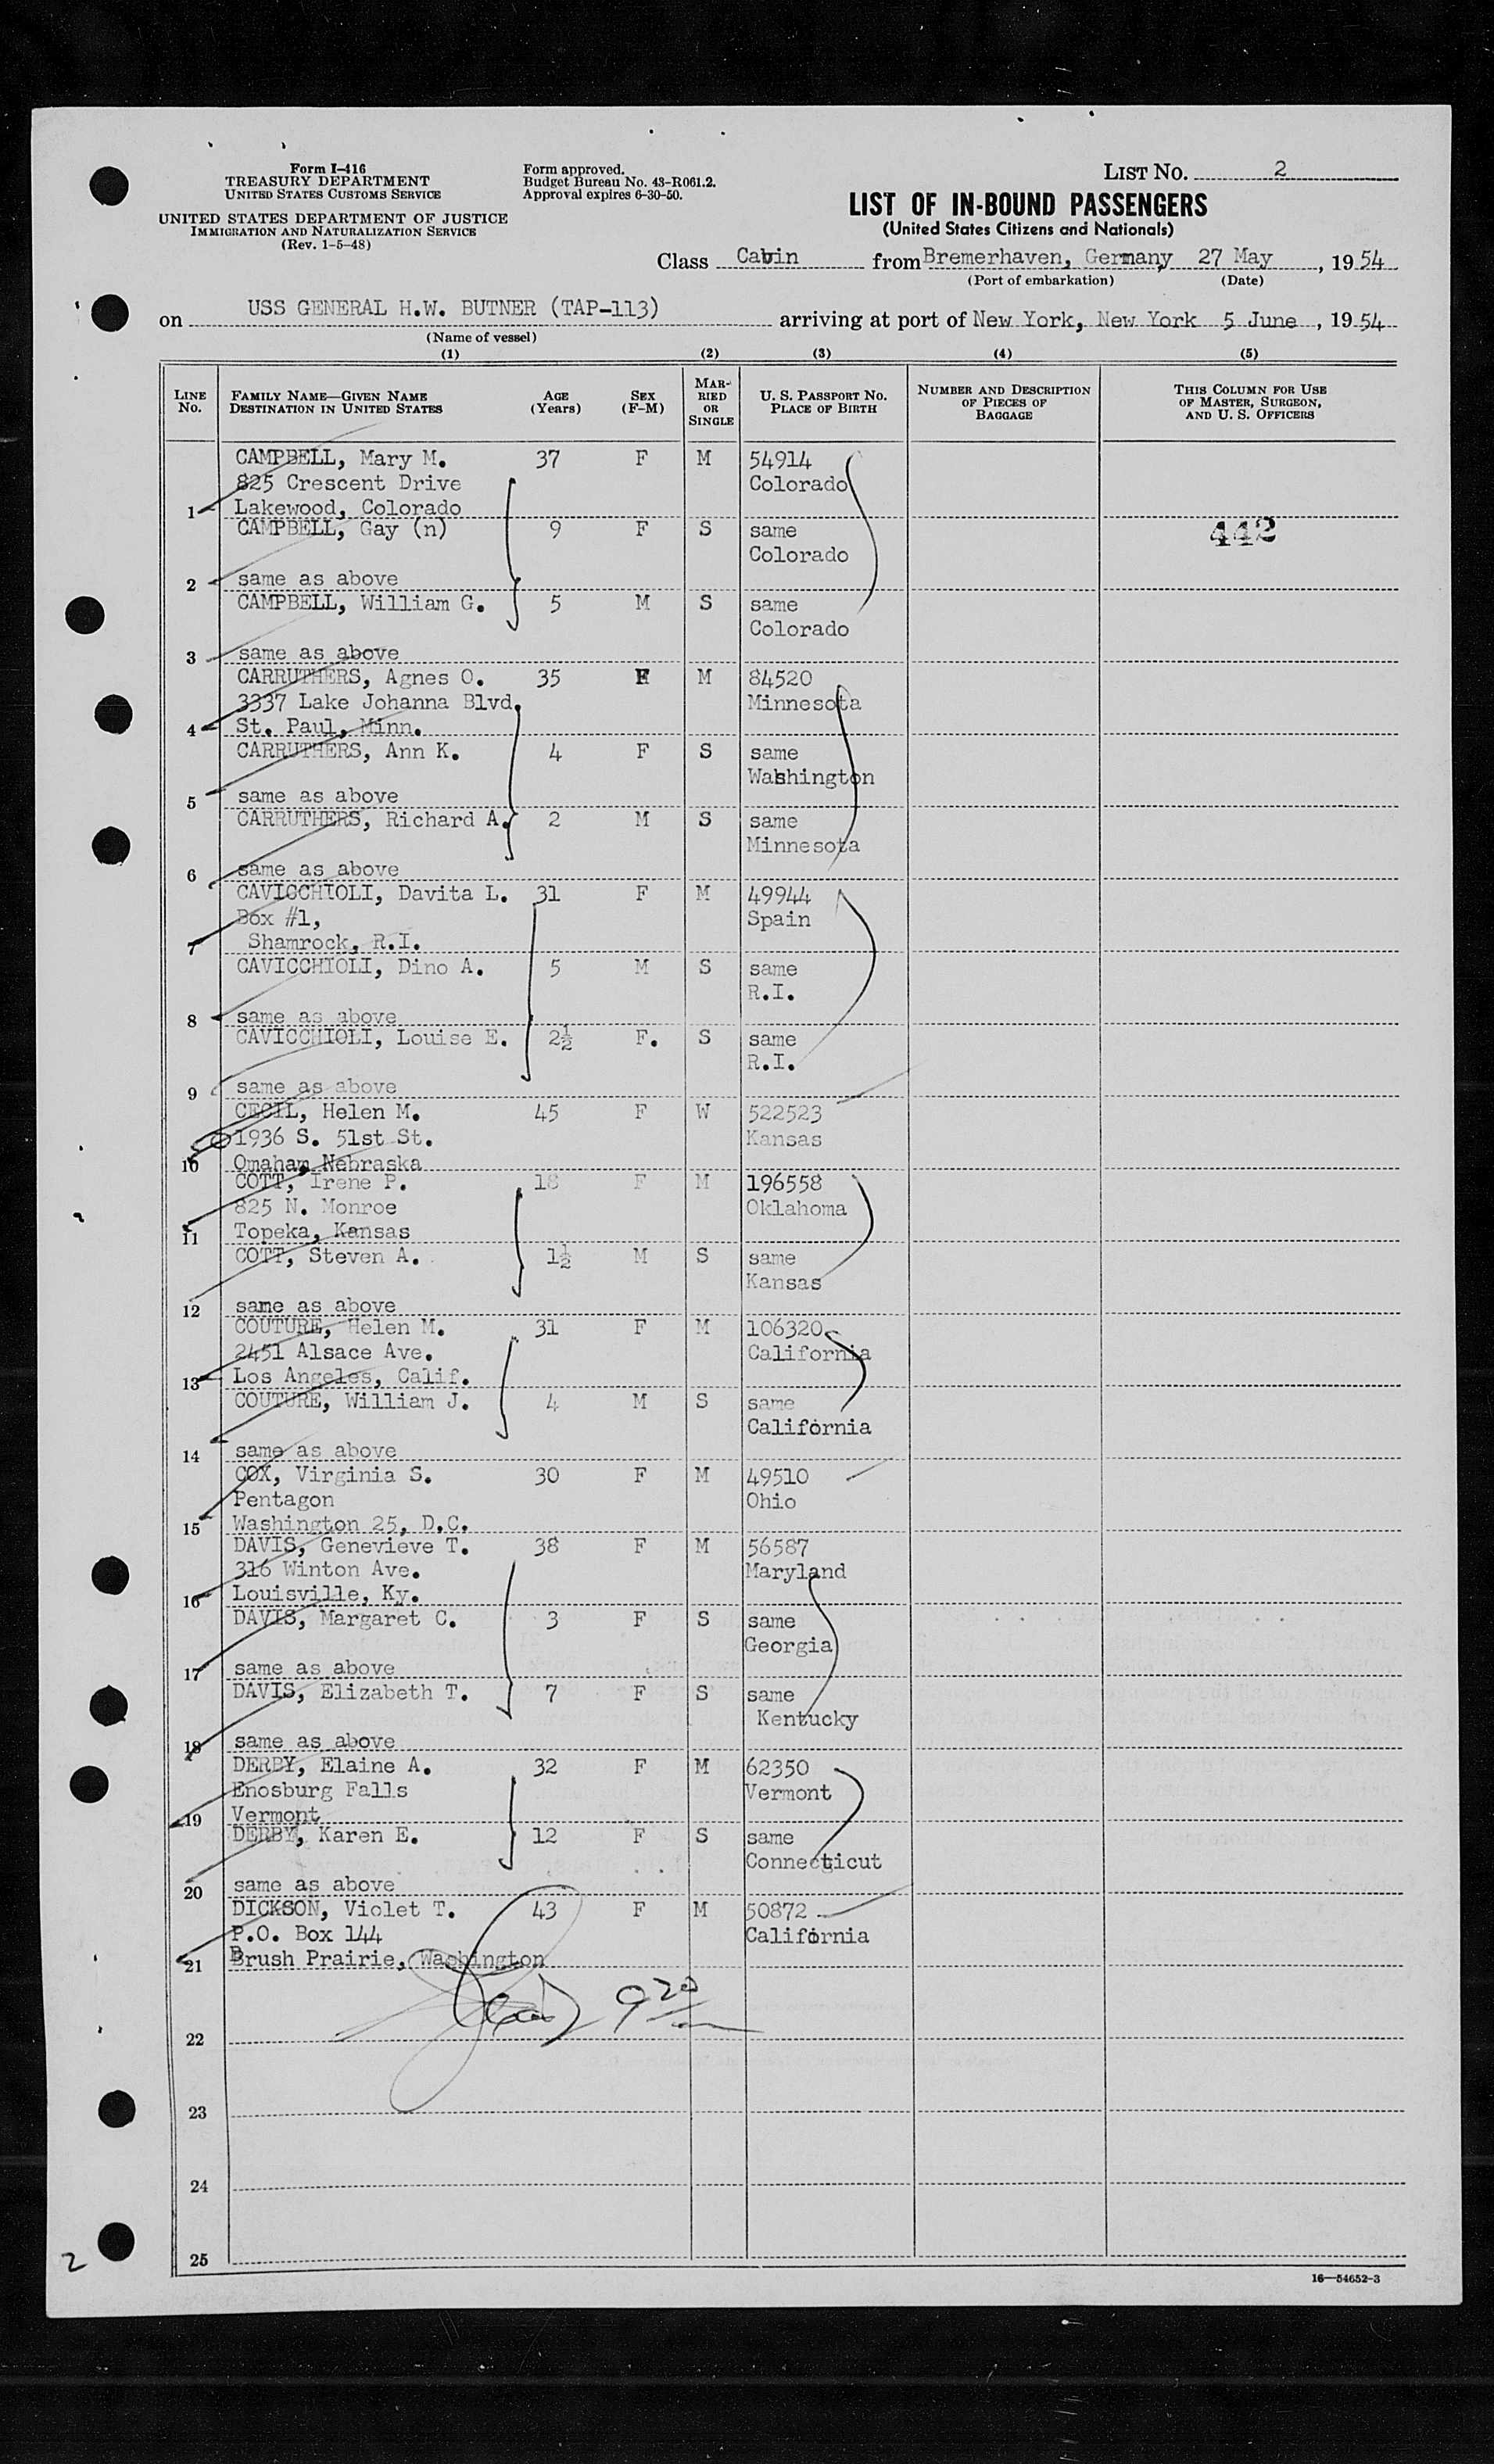 Form I-416
TREASURY DEPARTMENT
UNITED STATES CUSTOMS SERVICE
UNITED STATES DEPARTMENT OF JUSTICE
IMMIGRATION AND NATURALIZATION SERVICE
(Rev. 1-5-48)
Form approved.
Budget Bureau No. 43-R061.2.
Approval expires 6-30-50.
LIST NO. 2
LIST OF IN-BOUND PASSENGERS
(United States Citizens and Nationals)
Class Cabin from Bremerhaven, Germany 27 May, 1954
(Port of embarkation) (Date)
on USS GENERAL H.W. BUTNER (TAP-113) arriving at port of New York, New York 5 June, 1954
(Name of vessel)
(1) (2) (3) (4) (5)
LINE NO. FAMILY NAME—GIVEN NAME DESTINATION IN UNITED STATES AGE (Years) SEX (F-M) MARRIED OR SINGLE U. S. PASSPORT NO. PLACE OF BIRTH NUMBER AND DESCRIPTION OF PIECES OF BAGGAGE THIS COLUMN FOR USE OF MASTER, SURGEON, AND U. S. OFFICERS
CAMPBELL, Mary M. 37 F M 54914
825 Crescent Drive Colorado
1 Lakewood, Colorado
CAMPBELL, Gay (n) 9 F S same 442
Colorado
2 same as above
CAMPBELL, William G. 5 M S same
Colorado
3 same as above
CARRUTHERS, Agnes O. 35 F M 84520
3337 Lake Johanna Blvd. Minnesota
4 St. Paul, Minn.
CARRUTHERS, Ann K. 4 F S same
Washington
5 same as above
CARRUTHERS, Richard A. 2 M S same
Minnesota
6 same as above
CAVICCHIOLI, Davita L. 31 F M 49944
Box #1, Spain
7 Shamrock, R.I.
CAVICCHIOLI, Dino A. 5 M S same
R.I.
8 same as above
CAVICCHIOLI, Louise E. 2½ F. S same
R.I.
9 same as above
CECIL, Helen M. 45 F W 522523
1936 S. 51st St. Kansas
10 Omaham, Nebraska
COTT, Irene P. 18 F M 196558
825 N. Monroe Oklahoma
11 Topeka, Kansas
COTT, Steven A. 1½ M S same
Kansas
12 same as above
COUTURE, Helen M. 31 F M 106320
2451 Alsace Ave. California
13 Los Angeles, Calif.
COUTURE, William J. 4 M S same
California
14 same as above
COX, Virginia S. 30 F M 49510
Pentagon Ohio
15 Washington 25, D.C.
DAVIS, Genevieve T. 38 F M 56587
316 Winton Ave. Maryland
16 Louisville, Ky.
DAVIS, Margaret C. 3 F S same
Georgia
17 same as above
DAVIS, Elizabeth T. 7 F S same
Kentucky
18 same as above
DERBY, Elaine A. 32 F M 62350
Enosburg Falls Vermont
19 Vermont
DERBY, Karen E. 12 F S same
Connecticut
20 same as above
DICKSON, Violet T. 43 F M 50872
P.O. Box 144 California
21 Brush Prairie, Washington
22
23
24
25
2
16—54652-3